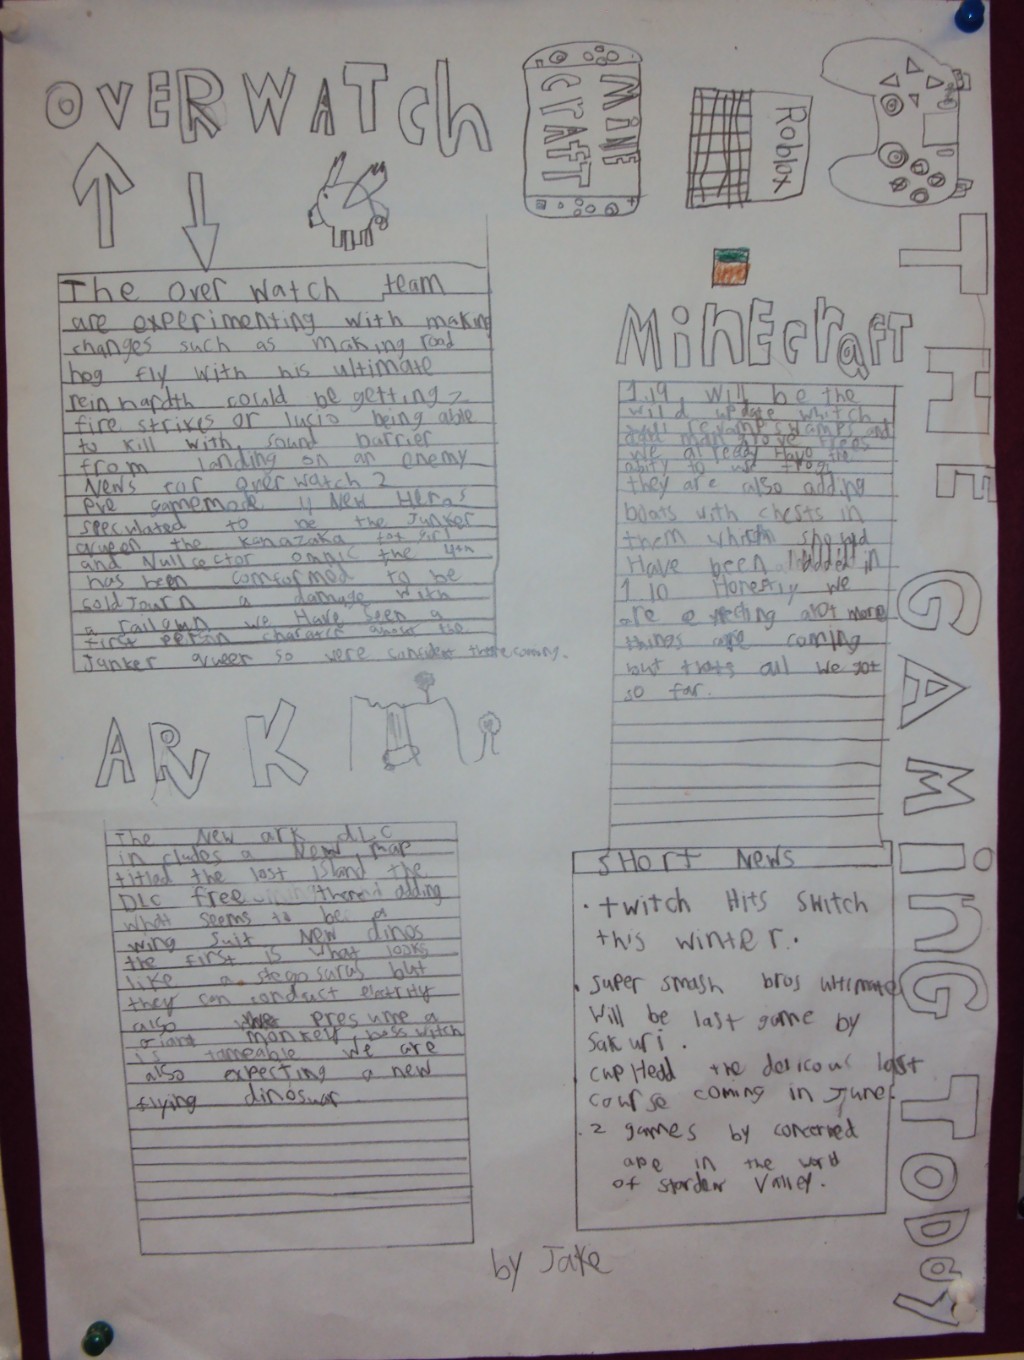 OVERWATCh
MINE
CRAFT
Roblox
THE GAMING TODay
The over watch team
are experimenting with making
changes such as making road
hog fly with his ultimate
rein hardth could be getting 2
fire strikes or lucio being able
to kill with sound barrier
from landing on an enemy
News for over watch 2
pve gamemode 4 New Heros
speculated to be the Junker
queen the Kanazaka fox girl
and Nullsector omnic the 4th
has been comformed to be
soldJourn a damage with
a railgun we Have seen a
first person
Junker queen so were consider there coming.
MinEcraFT
1.19, will be the
wild update whitch
will revamp swamps and
add man grove trees
we already Have the
abity to
they are also adding
boats with chests in
them which should
Have been added in
1 in Honestly we
are expecting alot more
things are coming
but thats all we got
so far.
ARK
The New ark dLC
in cludes a New map
titled the lost island the
DLC free adding
what seems to be a
wing suit New dinos
the first is what looks
like a stego saras but
they can conduct eletrity
also presume a
giant monkey boss witch
is tameable we are
also expecting a new
flying dinosuar
SHort News
· twitch Hits switch
this winter.
· super smash bros ultimate
will be last game by
sakuri.
cupHead the delicous last
course coming in June.
· 2 games by concerned
ape in the world
of stardew Valley.
by Jake